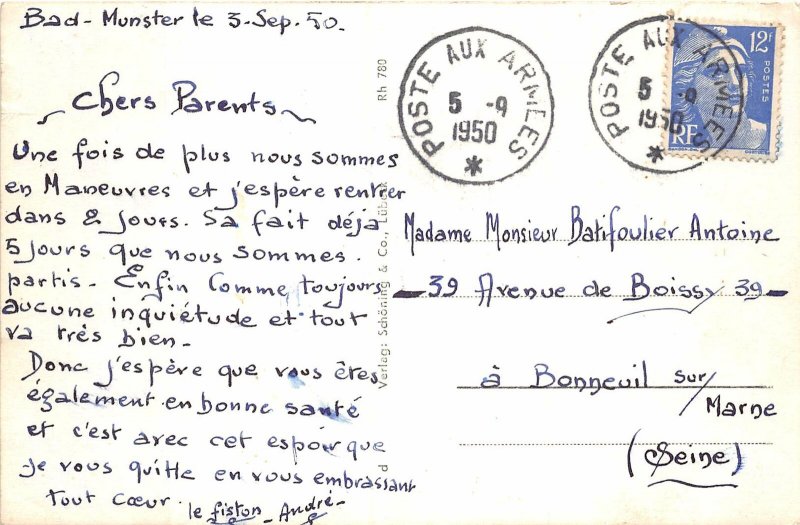 Bad-Munster le 3-Sep. 50.
Chers Parents
Une fois de plus nous sommes
en Maneuvres et j'espère rentrer
dans 2 jours. Sa fait déja
5 jours que nous sommes.
partis. Enfin comme toujours
aucune inquiétude et tout
va très bien.
Donc j'espère que vous êtes
également en bonne santé
et c'est avec cet espoir que
je vous quitte en vous embrassant
tout cœur.
le fiston - André -
Rh 780
Verlag: Schöning & Co., Lübeck
POSTE AUX ARMÉES
5 -9
1950
POSTE AUX ARMÉES
5 -9
1950
12F
POSTES
RF
Madame Monsieur Batifoulier Antoine
39 Avenue de Boissy 39
à Bonneuil sur/
Marne
(Seine)